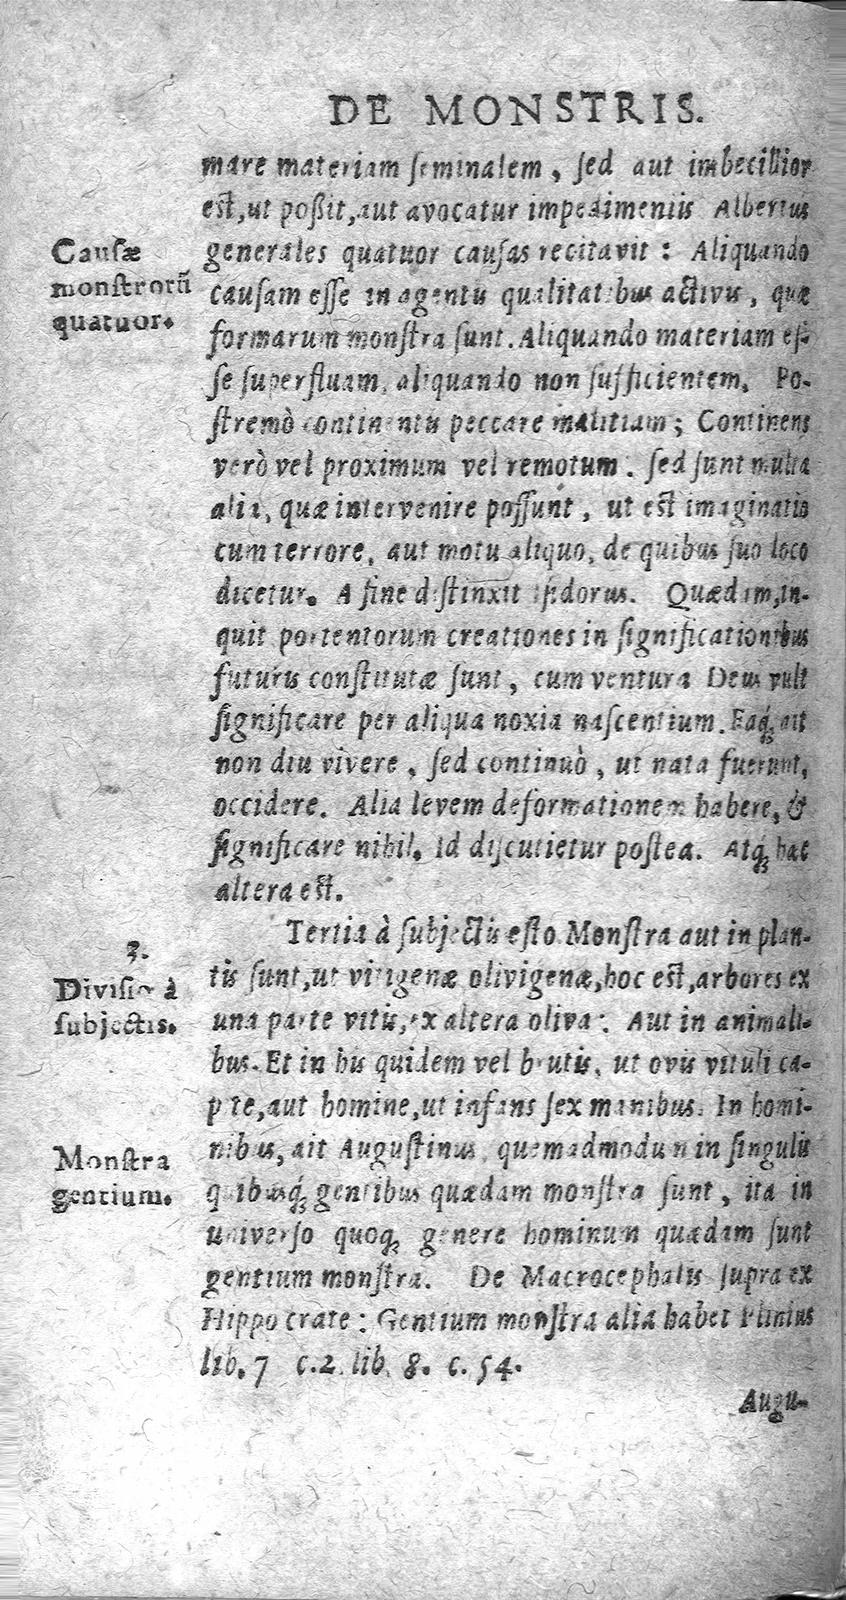 DE MONSTRIS.
mare materiam ſeminalem, ſed aut imbecillior
eſt, ut poßit, aut avocatur impedimentis Albertus
Cauſæ
monſtrorũ
quatuor.
generales quatuor cauſas recitavit: Aliquando
cauſam eſſe in agentis qualitatibus activis, quæ
formarum monſtra ſunt. Aliquando materiam eſ-
ſe ſuperfluam, aliquando non ſufficientem. Po-
ſtremò continentis peccare malitiam; Continens
verò vel proximum vel remotum. ſed ſunt multa
alia, quæ intervenire poſſunt, ut eſt imaginatio
cum terrore, aut motu aliquo, de quibus ſuo loco
dicetur. A fine diſtinxit iſidorus. Quædam, in-
quit portentorum creationes in ſignificationibus
futuris conſtitutæ ſunt, cum ventura Deus vult
ſignificare per aliqua noxia naſcentium. Eaq́ꝫ ait
non diu vivere, ſed continuò, ut nata fuerunt,
occidere. Alia levem deformationem habere, &
ſignificare nihil. Id diſcutietur poſtea. Atq́ꝫ hæc
altera eſt.
3.
Diviſio à
ſubjectis.
Tertia à ſubjectis eſto. Monſtra aut in plan-
tis ſunt, ut vitigenæ olivigenæ, hoc eſt, arbores ex
una parte vitis, ex altera oliva: Aut in animali-
bus. Et in his quidem vel brutis, ut ovis vituli ca-
pite, aut homine, ut infans ſex manibus. In homi-
Monſtra
gentium.
nibus, ait Auguſtinus, quemadmodum in ſingulis
quibusq́ꝫ gentibus quædam monſtra ſunt, ita in
univerſo quoqꝫ genere hominum quædam ſunt
gentium monſtra. De Macrocephalis ſupra ex
Hippocrate: Gentium monſtra alia habet Plinius
lib. 7 c. 2. lib. 8. c. 54.
Augu-